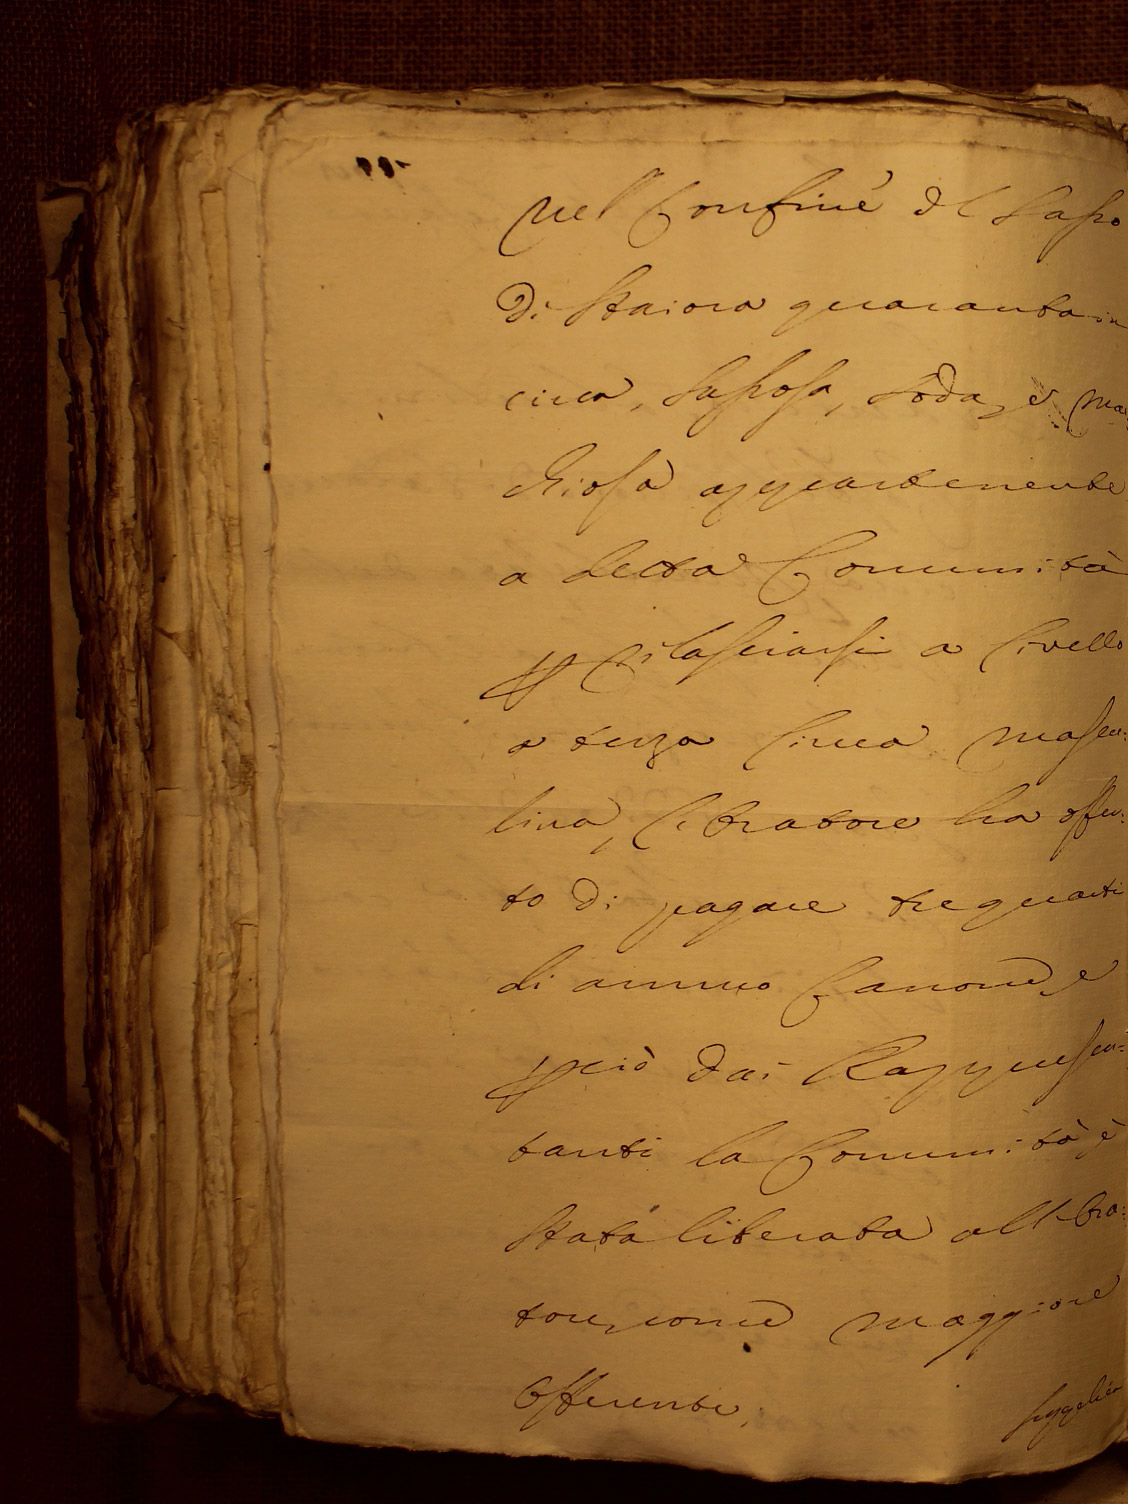 nel Confine del Sasso
di Staiora quaranta in
circa, Sassosa, soda, e ma
chiosa appartenente
a detta Comunità
p rilasciarsi a livello
a terza linea mascu:
lina, l'Oratore ha offer:
to di pagare tre quarti
di annuo Canone, e
p ciò dai Rappresen:
tanti la Comunità è
stata liberata all'Ora:
tore, come maggiore
Offerente,
supplica